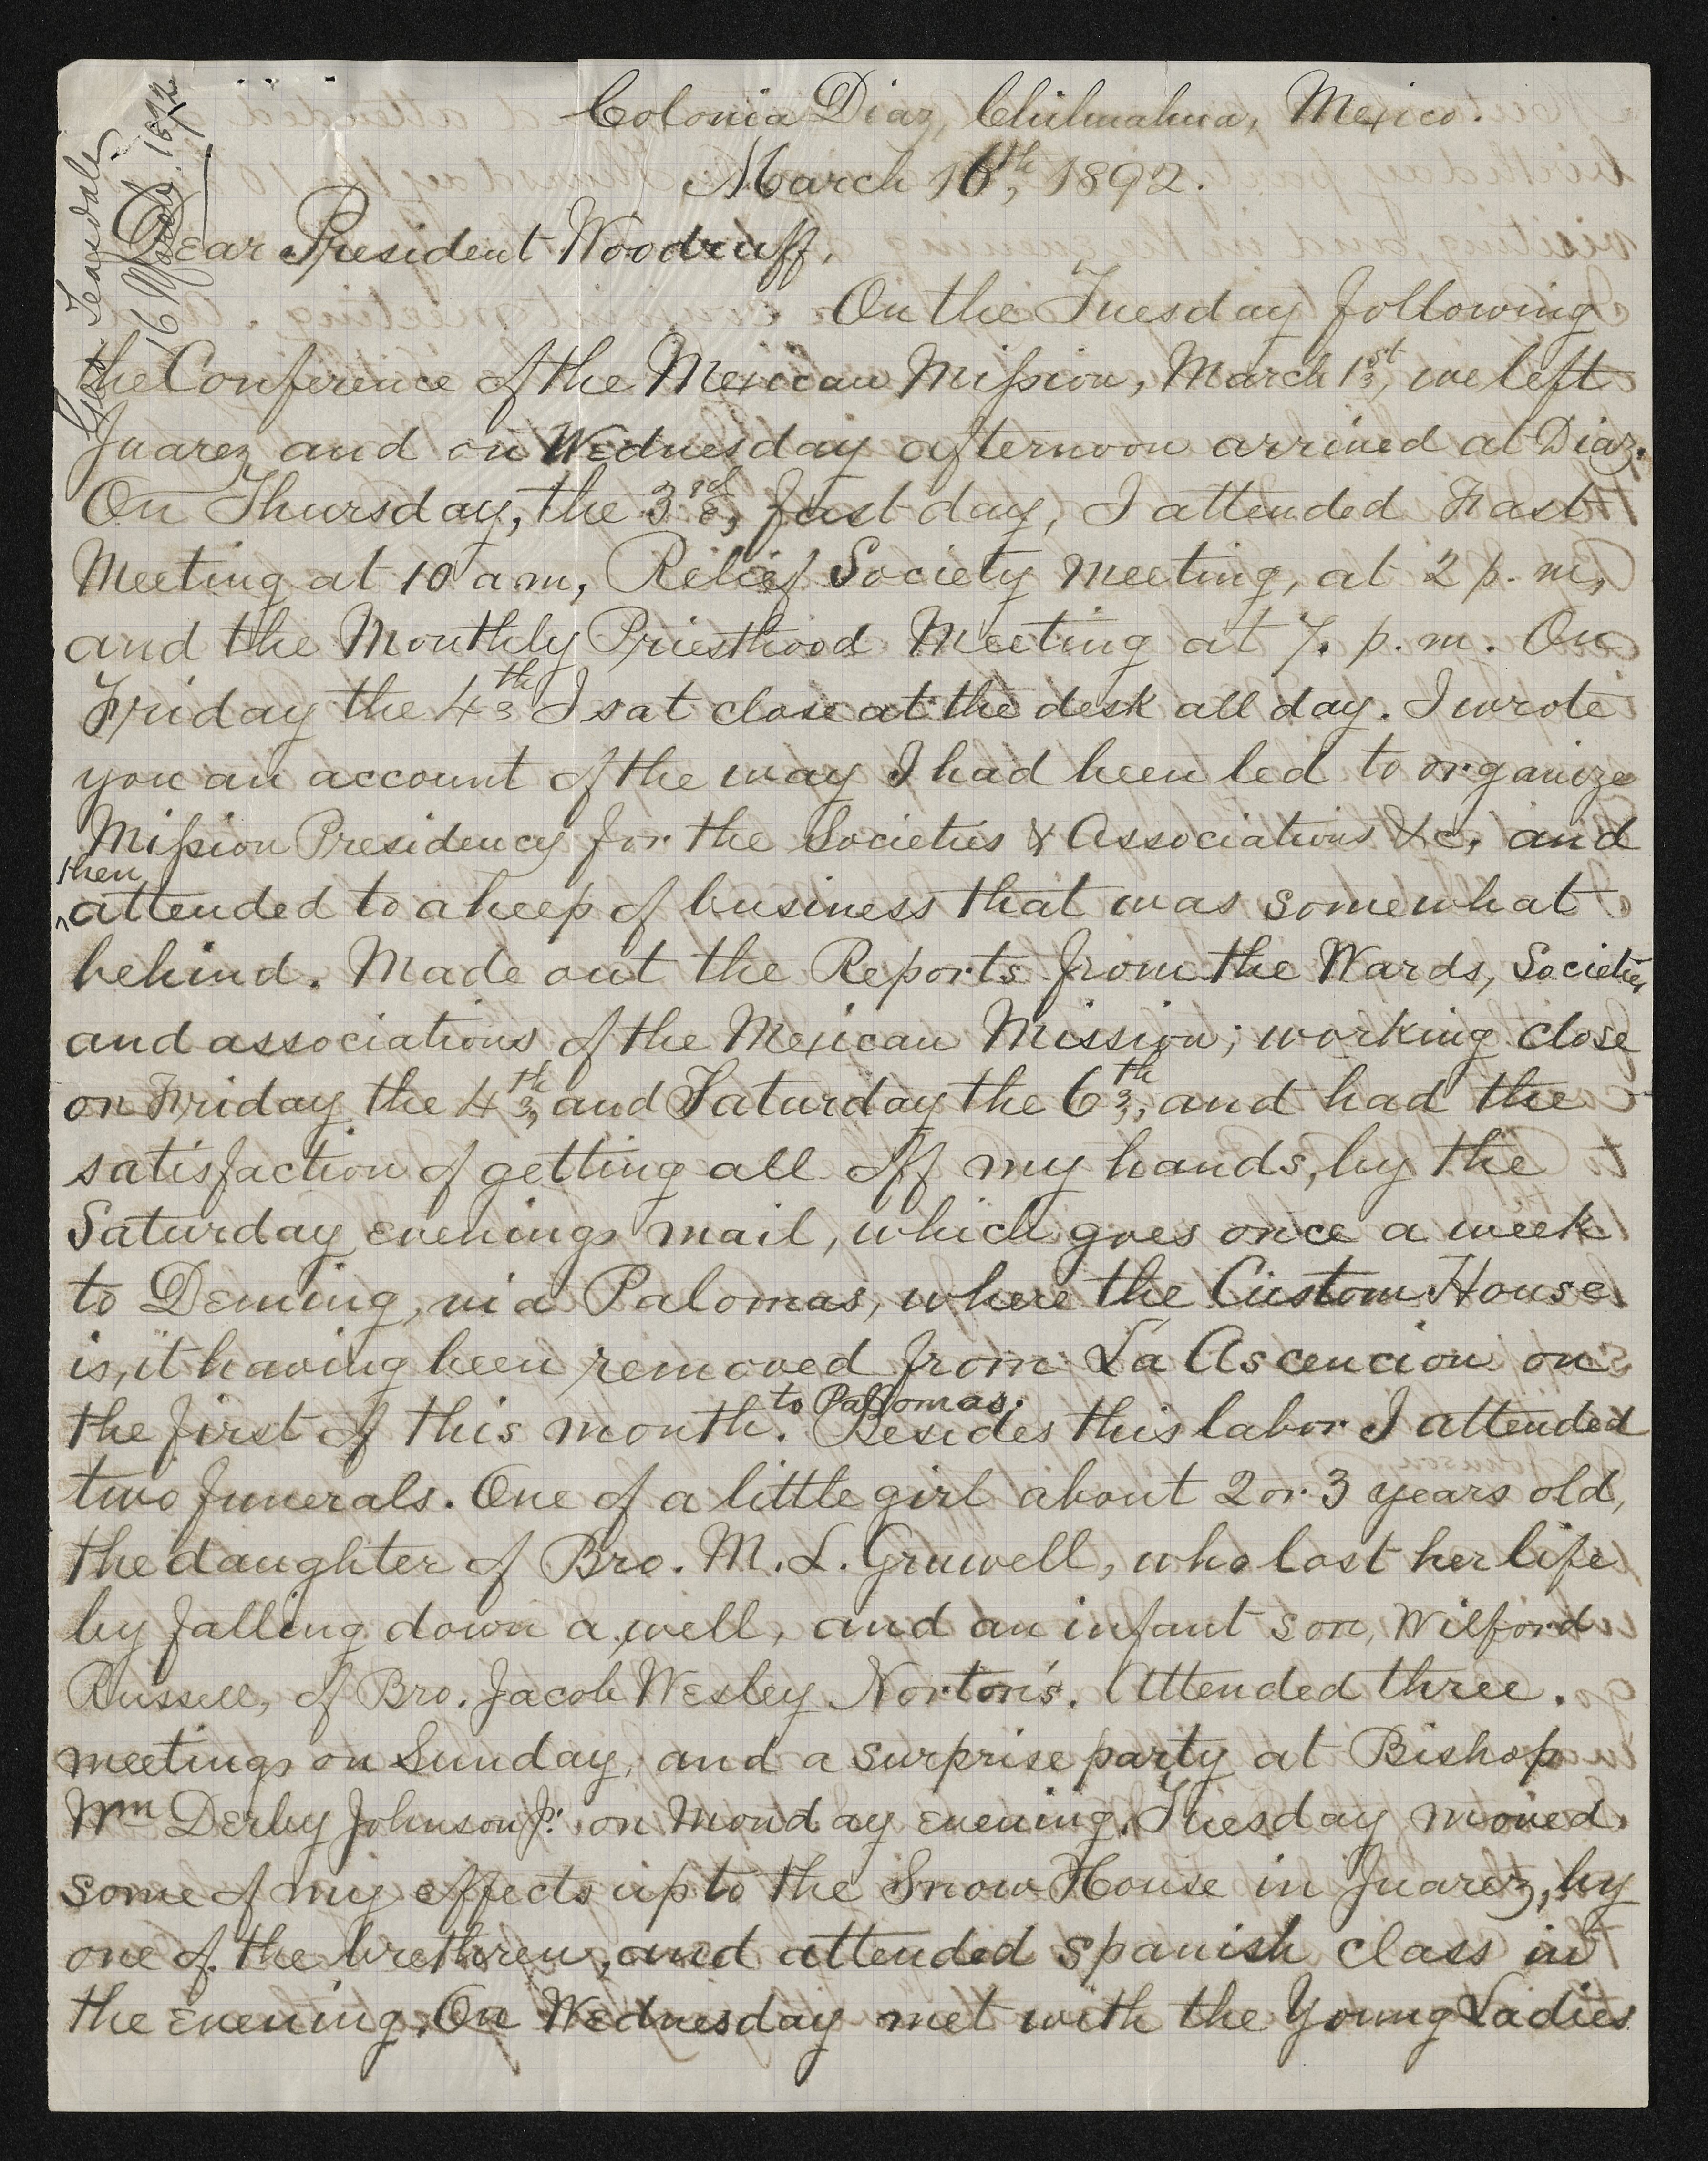 Geo. Teasdale
16 March. 1892
Colonia Diaz, Chihuahua, Mexico.
March 16th, 1892.
Dear President Woodruff,
On the Tuesday following
the Conference of the Mexican Mission, March 1st, we left
Juarez and on Wednesday afternoon arrived at Diaz.
On Thursday, the 3rd, fast day, I attended Fast
Meeting at 10 a m, Relief Society Meeting, at 2 p. m,
and the Monthly Priesthood Meeting at 7. p. m. On
Friday the 4th I sat close at the desk all day. I wrote
you an account of the way I had been led to organize
Mission Presidency for the Societies & Associations &c, and
then
^attended to a heep of business that was somewhat
behind. Made out the Reports from the Wards, Societies,
and associations of the Mexican Mission; working close
on Friday the 4th, and Saturday the 6th, and had the
satisfaction of getting all off my hands, by the
Saturday evenings mail, which goes once a week
to Deming, via Palomas, where the Custom House
is, it having been removed from La Ascencion on
to Pallomas.
the first of this month. Besides this labor I attended
two funerals. One of a little girl about 2 or 3 years old,
the daughter of Bro. M. L. Gruwell, who lost her life
by falling down a well, and an infant son, Wilford
Russell, of Bro. Jacob Wesley Norton's. Attended three.
meetings on Sunday, and a surprise party at Bishop
Wm Derby Johnson Jr. on Monday evening. Tuesday moved
some of my effects up to the Snow House in Juarez, by
one of the brethren, and attended spanish class in
the evening. On Wednesday met with the Young Ladies